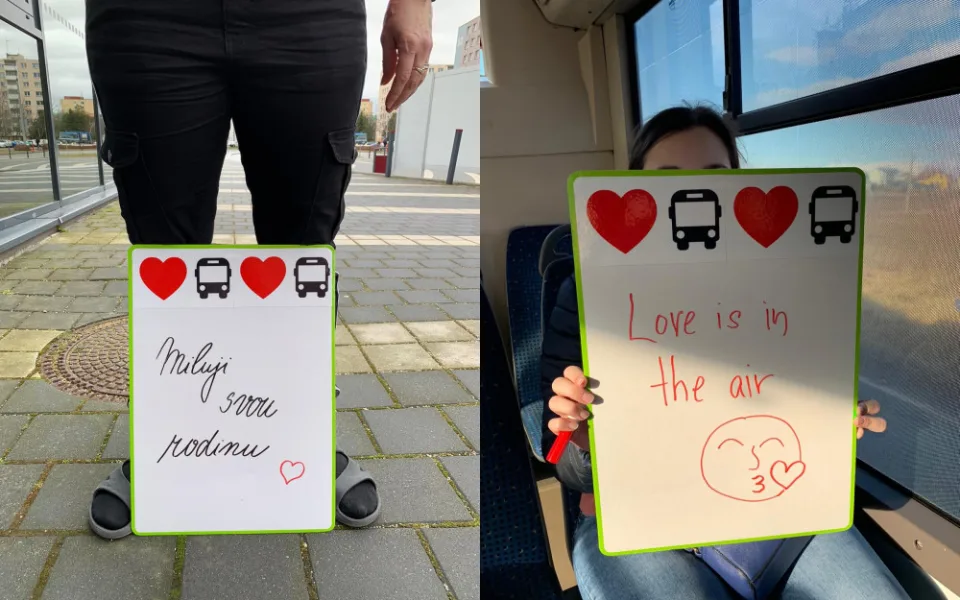 Miluji
svou
rodinu
Love is in
the air